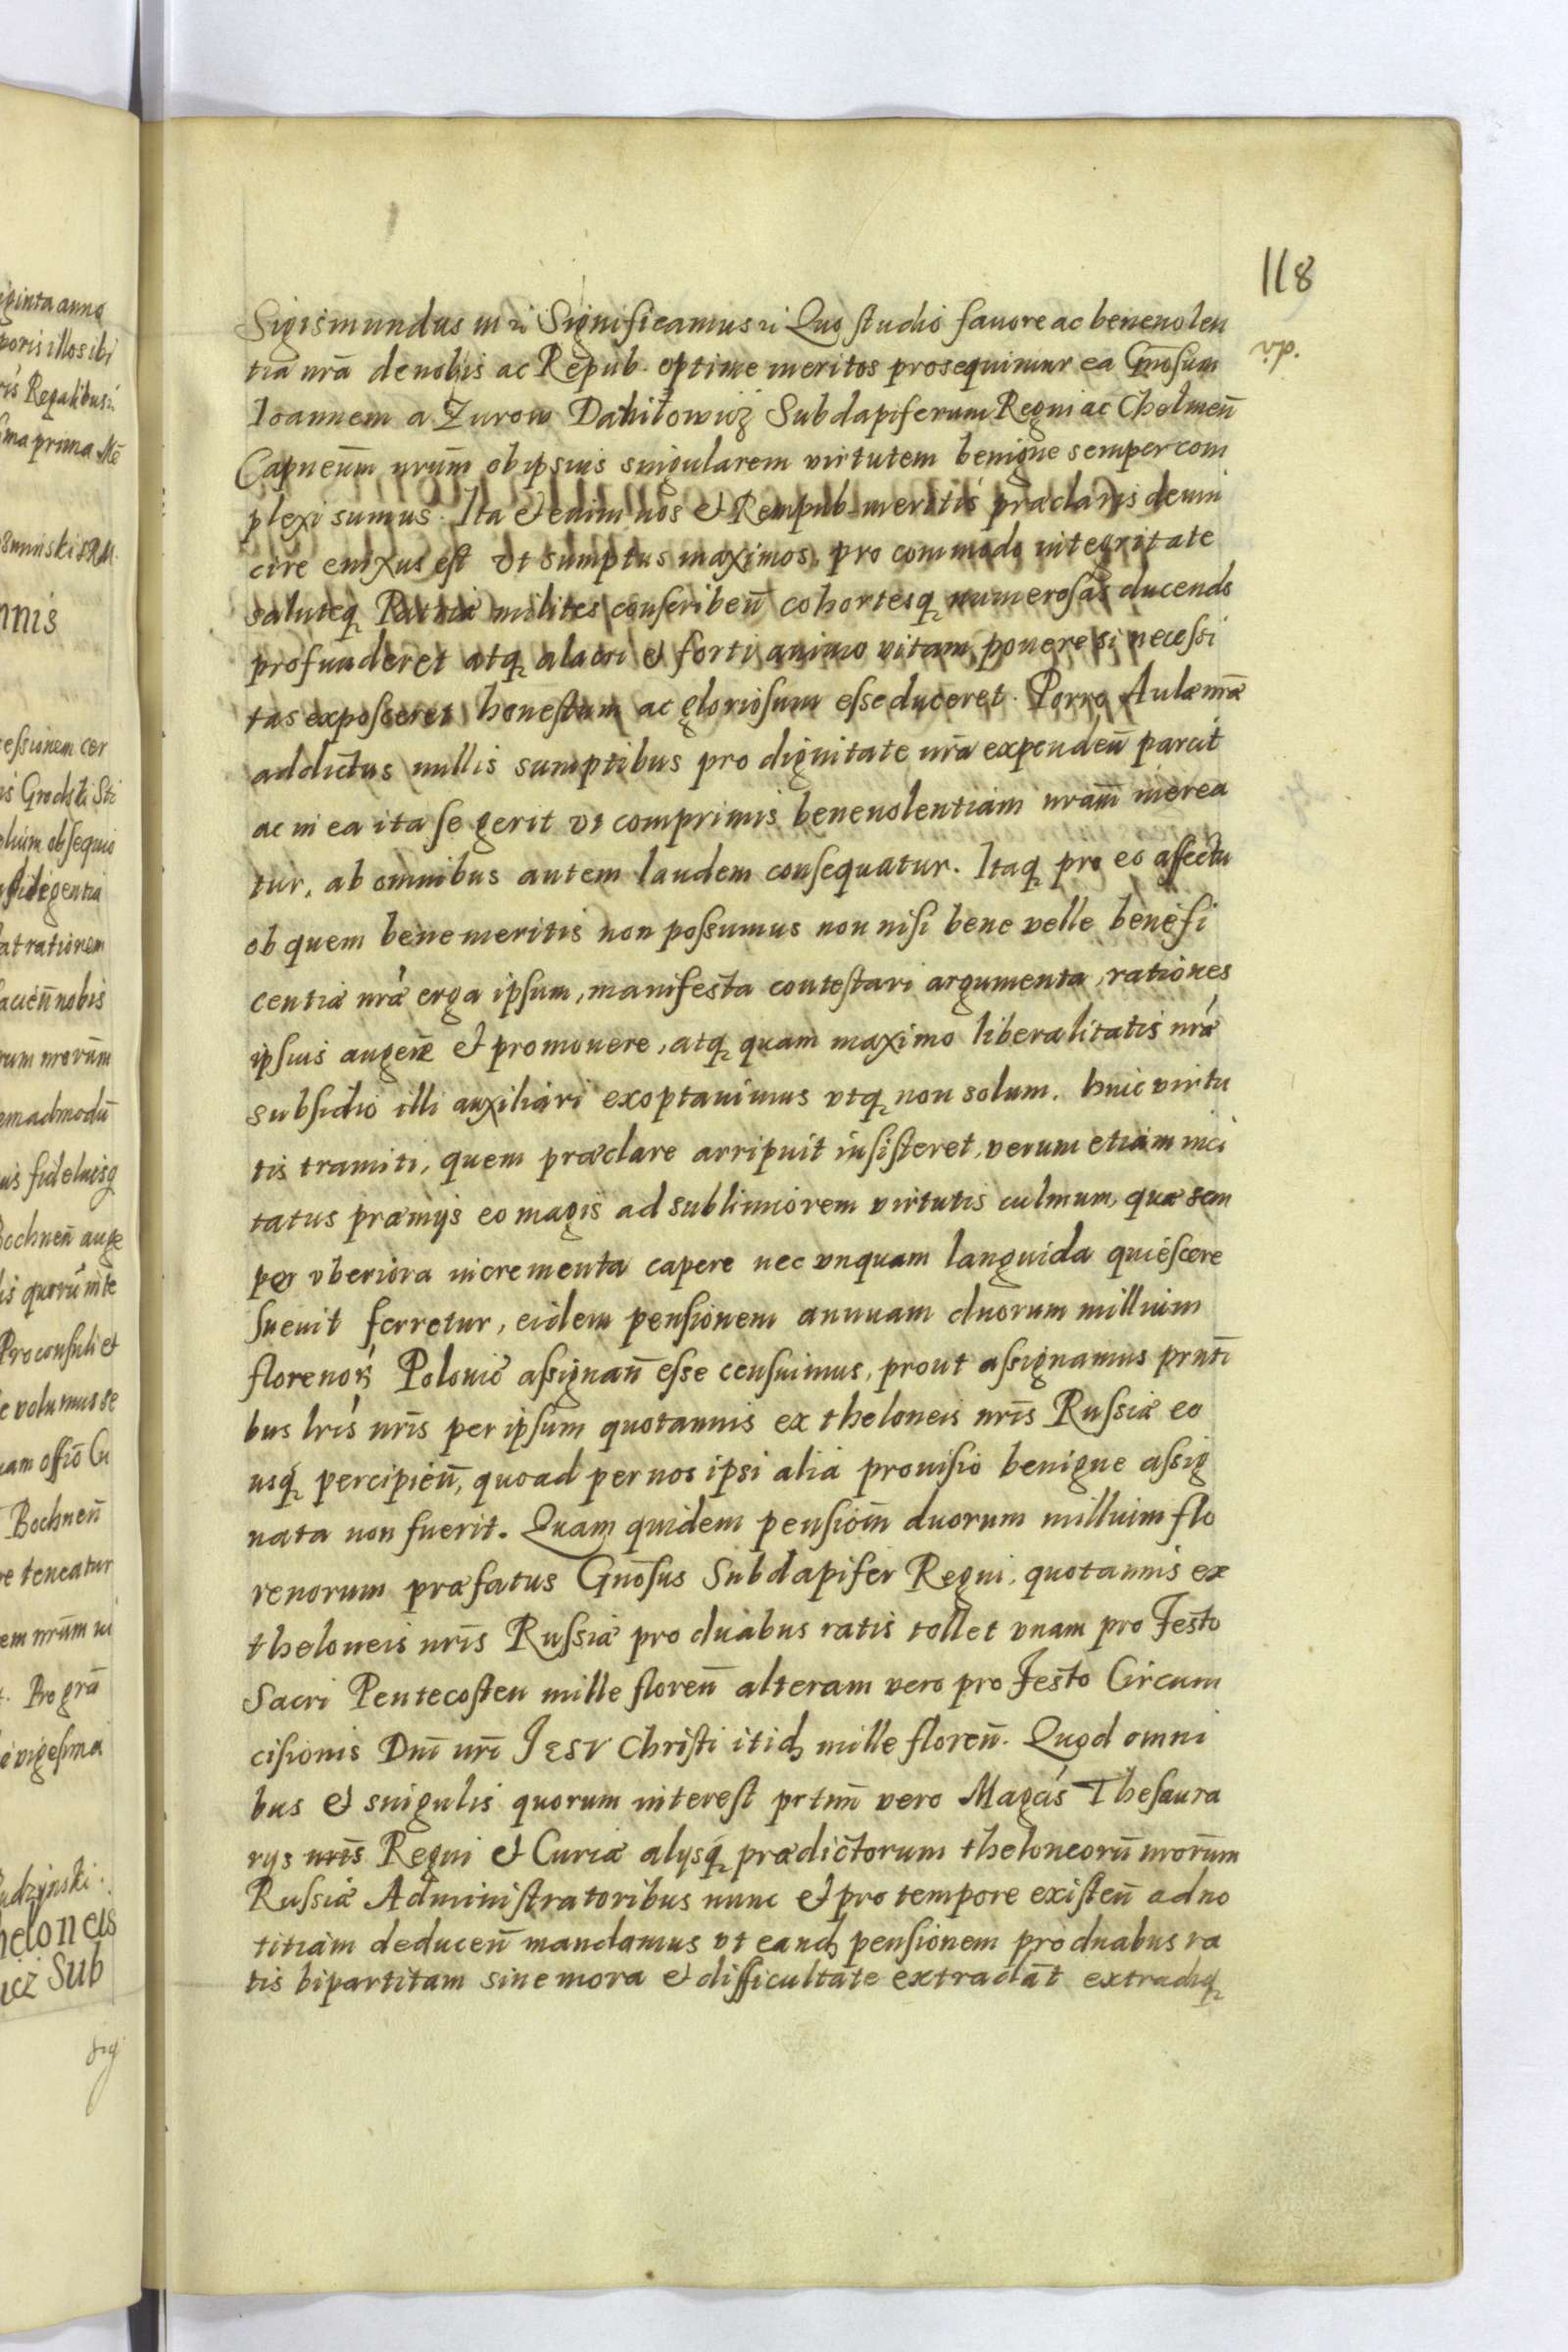 118
Sigismundus III ꝛ Significamus ꝛ Quo studio fauore ac beneuolen
tia nrã de nobis ac Repub. optime meritos prosequimur ea Gnõsum
Ioannem a Zurow Daniłowicz Subdapiferum Regni ac Chelmeñ
Capneũm nrũm ob ipsius singularem virtutem benigne semper com
plexi sumus. Ita etenim nos et Rempub meritis præclaris deuin
cire enixus est vt sumptus maximos, pro commodo integritate
saluteq Patriæ milites conscribeñ cohortesq numerosas ducendo
profunderet atq alacri et forti animo vitam ponere si necessi
tas exposceret honestum ac gloriosum esse duceret. Porro Aulæ nrã
addictus nullis sumptibus pro dignitate nrã expendeñ parcit
ac in ea ita se gerit vt comprimis beneuolentiam nram̃ merea
tur, ab omnibus autem laudem consequatur. Itaq pro eo affectu
ob quem bene meritis non possumus non nisi bene velle, benefi
centiæ nræ erga ipsum, manifesta contestari argumenta, rationes
ipsius augere et promouere, atq quam maximo liberalitatis nræ
subsidio illi auxiliari exoptauimus vtq non solum huic virtu
tis tramiti, quem præclare arripuit insisteret, verum etiam inci
tatus præmijs eo magis ad sublimiorem virtutis culmum, quæ sem
per vberiora incrementa capere nec vnquam languida quiescere
sueuit ferretur, eidem pensionem annuam duorum millium
florenoꝝ Polonic assignañ esse censuimus, prout assignamus prñti
bus lris nrĩs per ipsum quotannis ex theloneis nrĩs Russiæ eo
usq percipieñ, quoad per nos ipsi alia prouisio benigne assig
nata non fuerit. Quam quidem pensiom̃ duorum millium flo
renorum præfatus Gnõsus Subdapifer Regni, quotannis ex
theloneis nrĩs Russiæ pro duabus ratis tollet vnam pro Festo
Sacri Pentecosten mille floreñ alteram vero pro Festo Circum
cisionis Dnĩ nrĩ IESV Christi itid mille floreñ. Quod omni
bus et singulis quorum interest prtim̃ vero Magcis Thesaura
rijs nrĩs Regni et Curiæ alijsq prædictorum theloneorũ nrorũm
Russiæ Administratoribus nunc et pro tempore existeñ ad no
titiam deduceñ mandamus vt eand pensionem pro duabus ra
tis bipartitam sine mora et difficultate extradãt extradiq